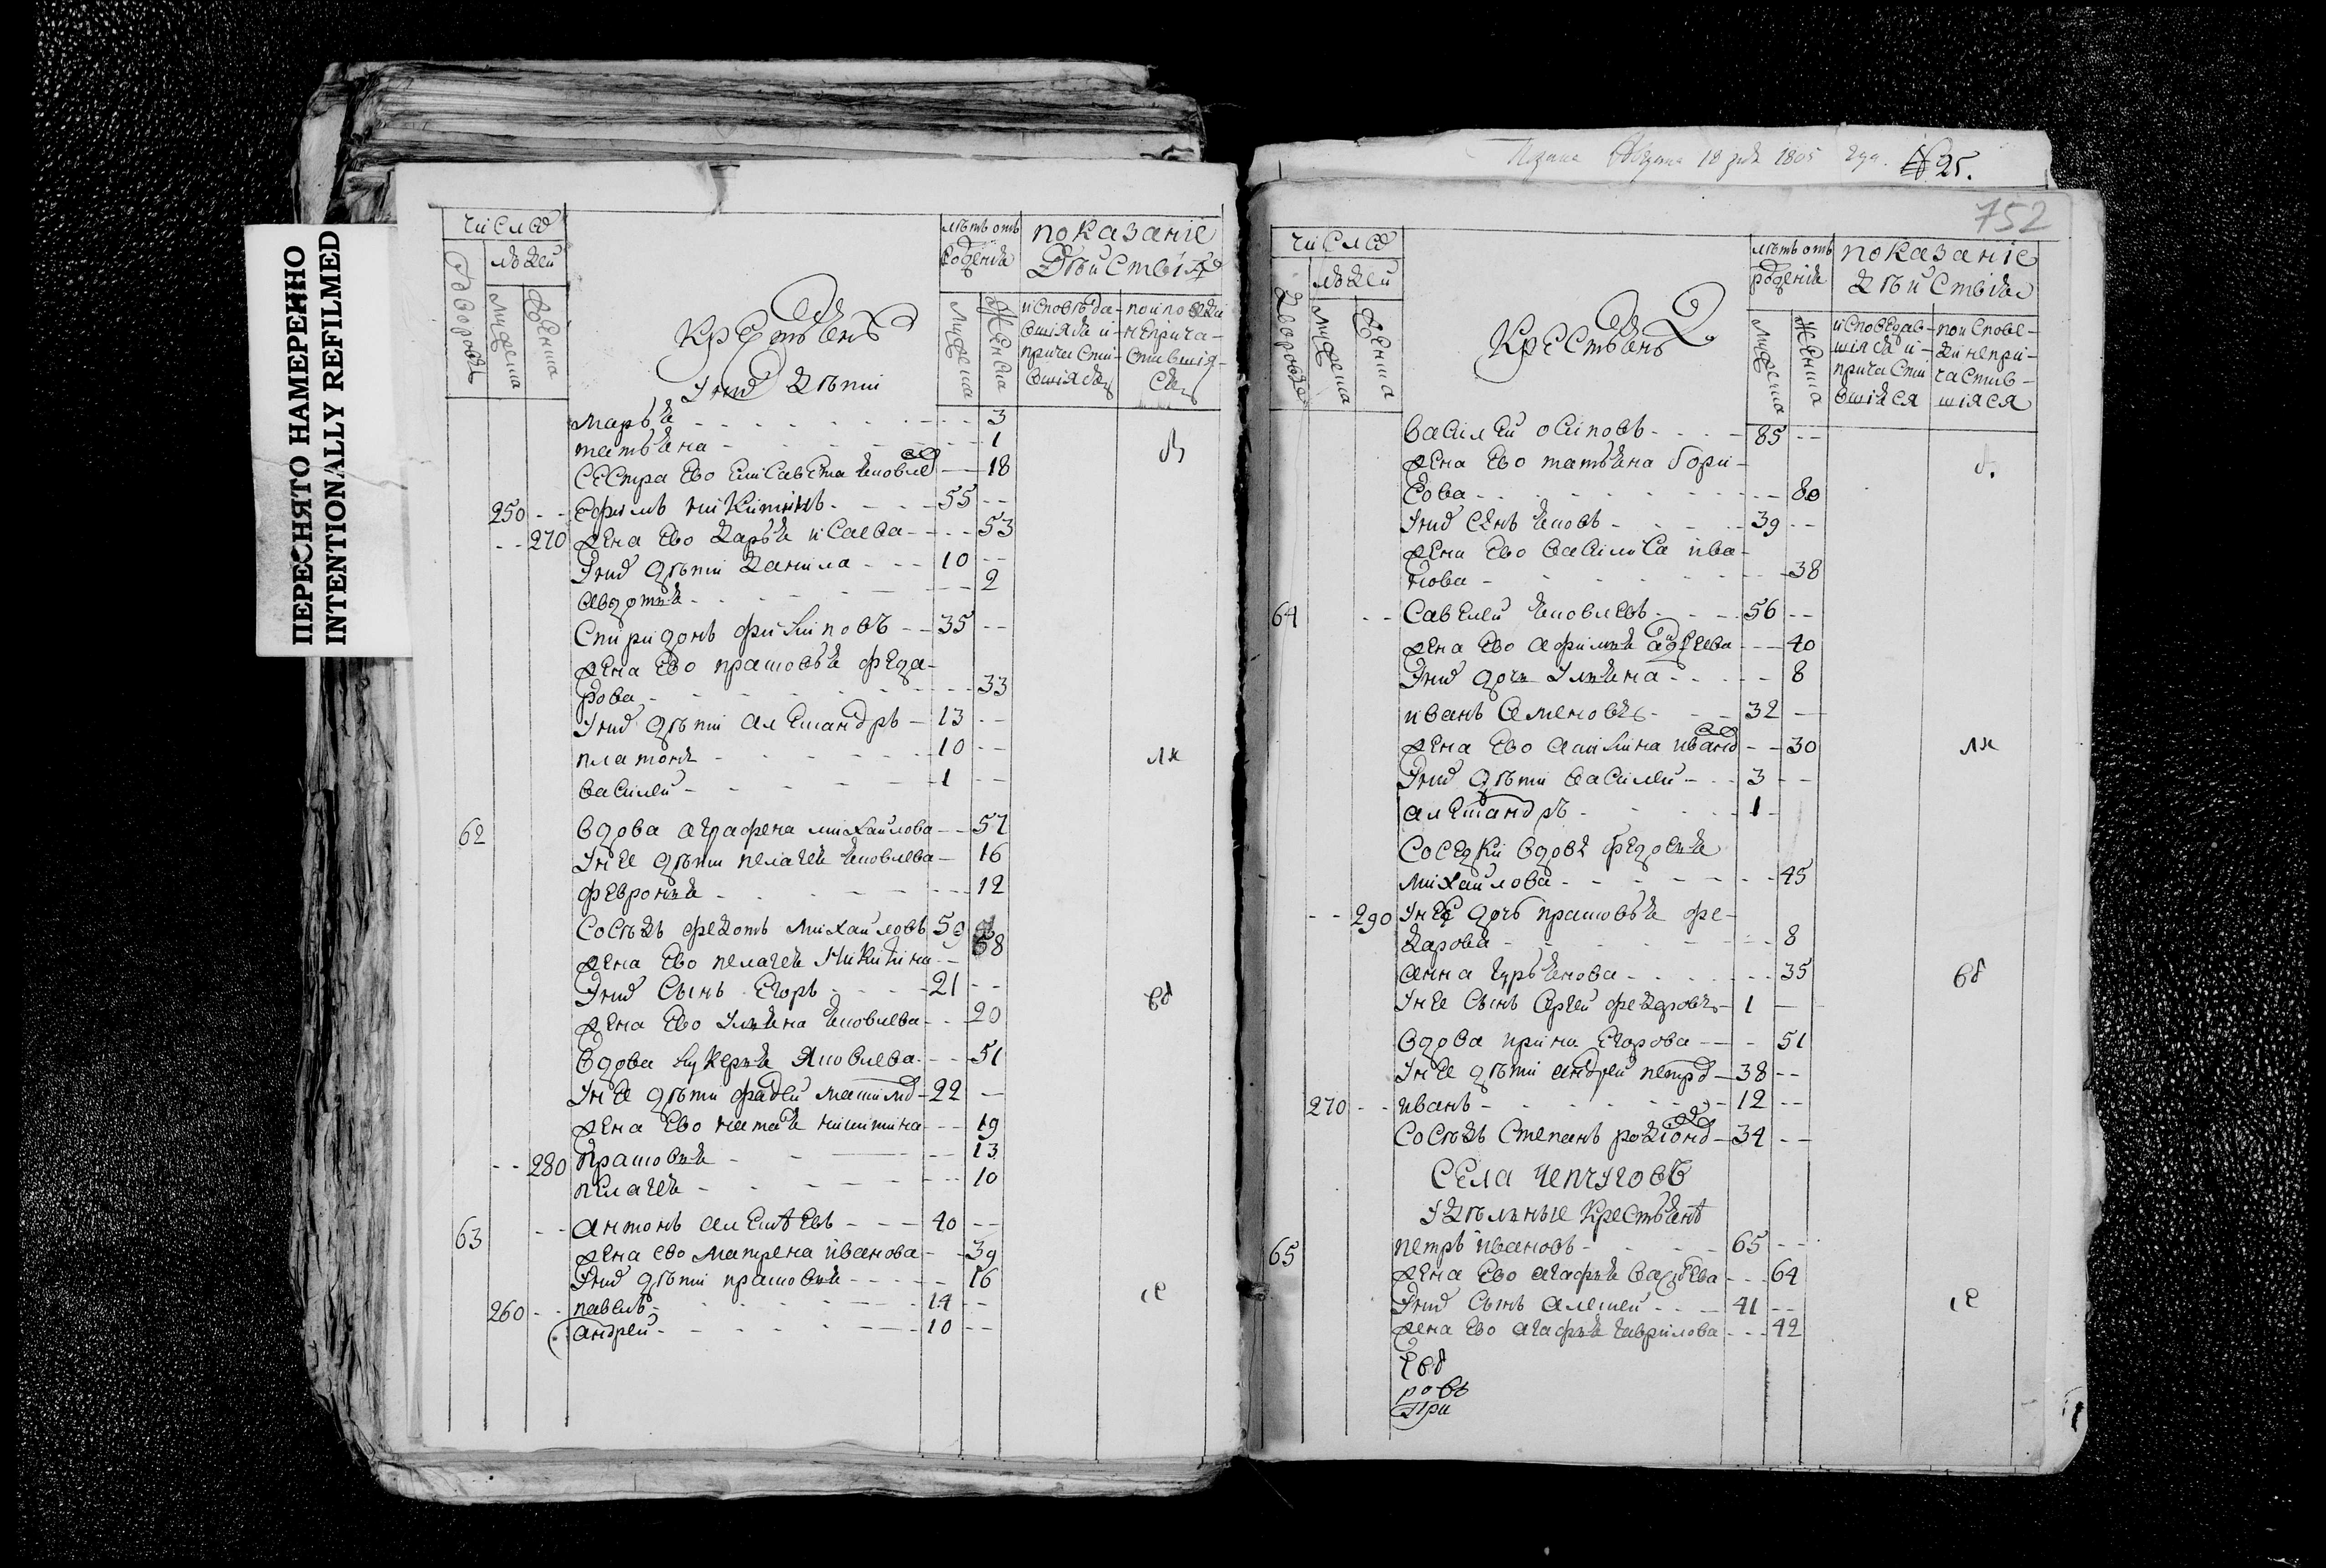 ПЕРЕСНЯТО НАМЕРЕННО
INTENTIONALLY REFILMED
числа
людей
лѣтъ отъ
показаніе
дѣйствія
дворовъ
мужеска
женска
Крестьянъ
У нихъ дѣти
мужеска
женска
исповѣда-
вшіяся и
причасти-
вшіяся
неприча-
стившія-
ся
марья 3
татьяна 1
сестра ево елисавета яковлева 18
250 ефимъ никитинъ 55
270 жена ево дарья исаева 53
У нихъ дѣти данила 10
авдотья 2
спиридонъ филиповъ 35
жена ево прасковья феда-
рова 33
У нихъ дѣти александръ 13
платонъ 10
василей 1
62 вдова аграфена михайлова 57
У нее дѣти пелагея яковлева 16
февронья 12
сосѣдъ федотъ михайловъ 59
жена ево пелагея никитина 58
У нихъ сынъ егоръ 21
жена ево ульяна яковлева 20
вдова лукерья яковлева 51
У нее дѣти фадей 22
жена ево наталья никитина 19
280 прасковья 13
пелагея 10
63 антонъ алексѣевъ 40
жена ево матрена иванова 39
У нихъ дѣти прасковья 16
260 павелъ 14
андрей 10
августа 18 дня 1805 года № 25.
752
числа
людей
лѣтъ отъ
рожденія
показаніе
дѣйствія
дворовъ
мужеска
женска
Крестьянъ
мужеска
женска
исповедав-
шіяся и
причасти
вшіяся
по испове-
ди непри-
частив-
шіяся
василей осиповъ 85
жена ево татьяна бори-
сова 80
У нихъ сынъ яковъ 39
жена ево василиса ива-
нова 38
64 савелей яковлевъ 56
жена ево афимья 40
У нихъ дочь ульяна 8
иванъ семеновъ 32
жена ево акилина иванова 30
У нихъ дѣти василей 3
александръ 1
соседки вдова федосья
михайлова 45
290 У нее дочь прасковья фе-
дарова 8
анна гурьянова 35
У нее сынъ сергей федаровъ 1
вдова ирина егорова 51
У нее дѣти андрей петровъ 38
270 иванъ 12
сосѣдъ степанъ родіоновъ 34
села чепчуговъ
Удѣльные крестьяне
65 петръ ивановъ 65
жена ево агафья 64
У нихъ сынъ алексей 41
жена ево агафья гаврилова 42